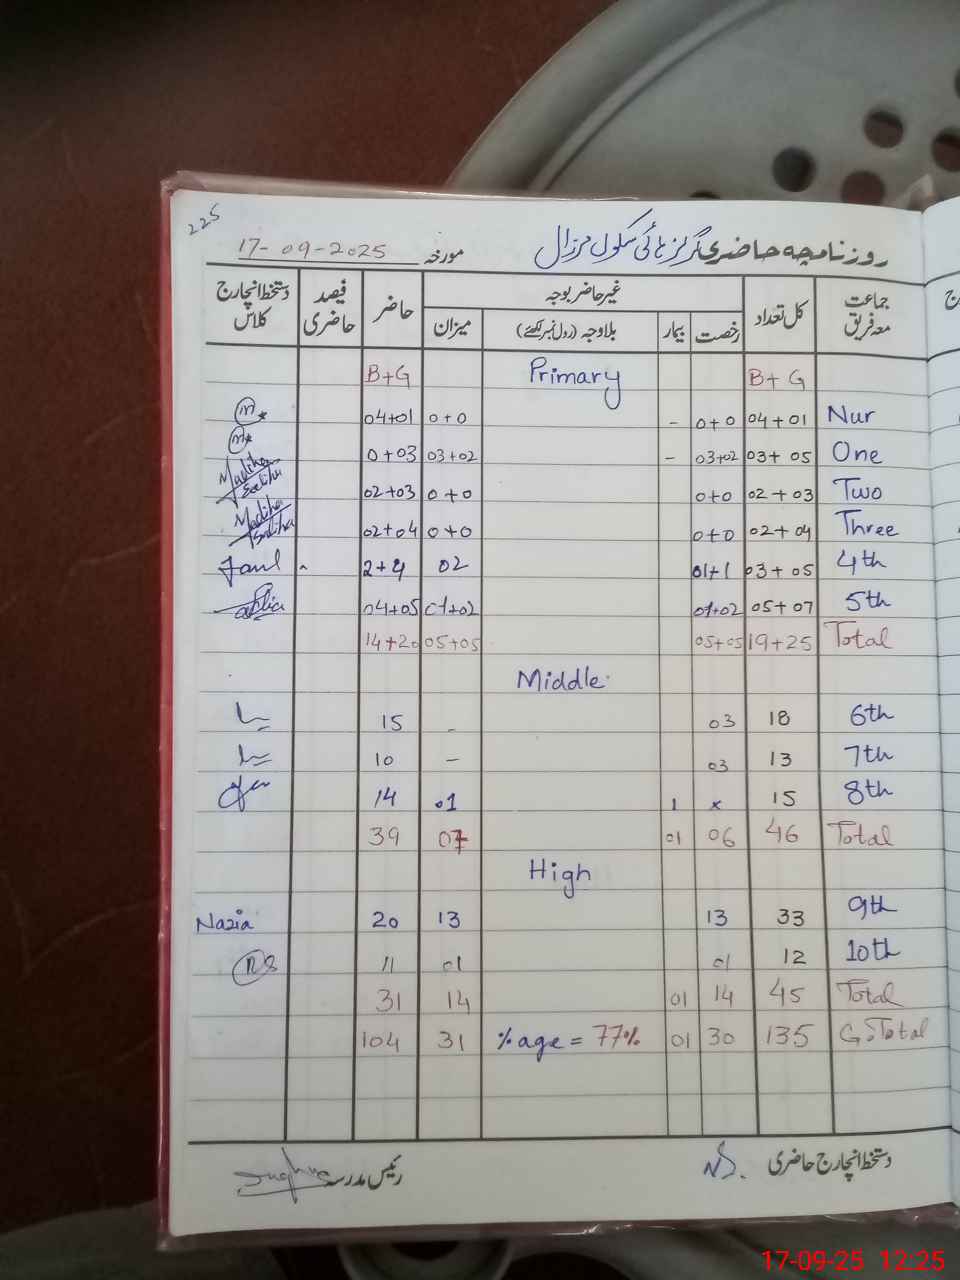 225
روزنامچہ حاضری گرلز ہائی سکول مرزال مورخہ 17-09-2025
جماعت معہ فریق کل تعداد غیر حاضر بوجہ حاضر فیصد حاضری دستخط انچارج کلاس
رخصت بیمار بلاوجہ (رول نمبر لکھئے) میزان
B+G Primary B+G
Nur 04+01 0+0 - 0+0 04+01
One 03+05 03+02 - 03+02 0+03
Two 02+03 0+0 0+0 02+03 Madiha
Three 02+04 0+0 0+0 02+04 Madiha
4th 03+05 01+1 02 2+4
5th 05+07 01+02 01+02 04+05
Total 19+25 05+05 05+05 14+20
Middle
6th 18 03 - 15
7th 13 03 - 10
8th 15 x 1 01 14
Total 46 06 01 07 39
High
9th 33 13 13 20 Nazia
10th 12 01 01 11 RS
Total 45 14 01 14 31
G.Total 135 30 01 % age = 77% 31 104
دستخط انچارج حاضری NS. رئیس مدرسہ
17-09-25 12:25